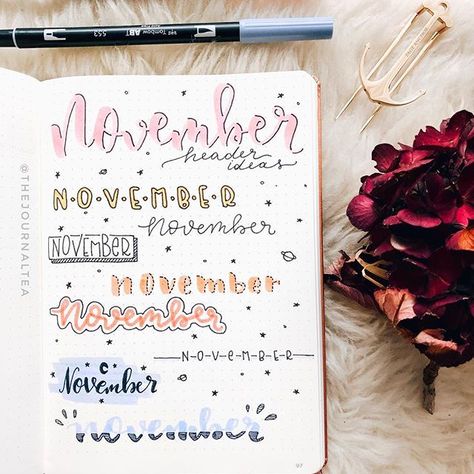 553 Tombow ABT
November
header
ideas
N·O·V·E·M·B·E·R
November
NOVEMBER
November
November
N-O-V-E-M-B-E-R
November
November
97
@THEJOURNALTEA